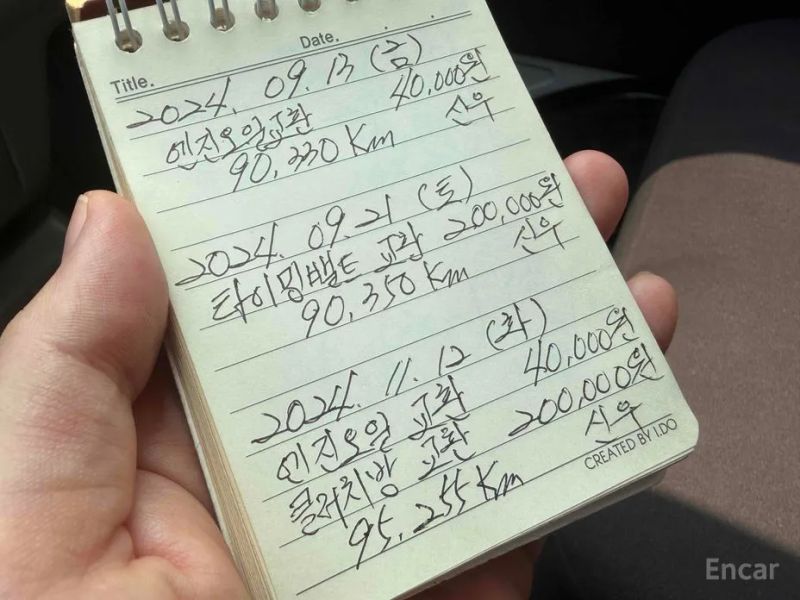 Date. . .
Title.
2024. 09. 13 (금)
엔진오일교환 40,000원
90,330 Km 신우
2024. 09. 21 (토)
타이밍밸트 교환 200,000원
90,350 Km 신우
2024. 11. 12 (화)
엔진오일 교환 40,000원
클러치방 교환 200,000원
95,255 Km 신우
CREATED BY I.DO
Encar